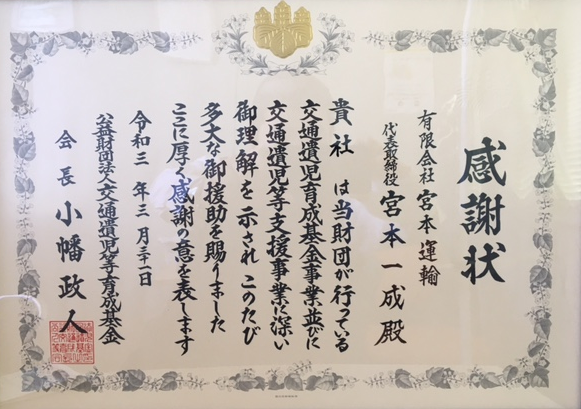 感謝状
有限会社 宮本運輸
代表取締役 宮本一成殿
貴社は当財団が行っている
交通遺児育成基金事業並びに
交通遺児等支援事業に深い
御理解を示されこのたび
多大な御援助を賜りました
ここに厚く感謝の意を表します
令和三年三月三十一日
公益財団法人交通遺児等育成基金
会長 小幡政人